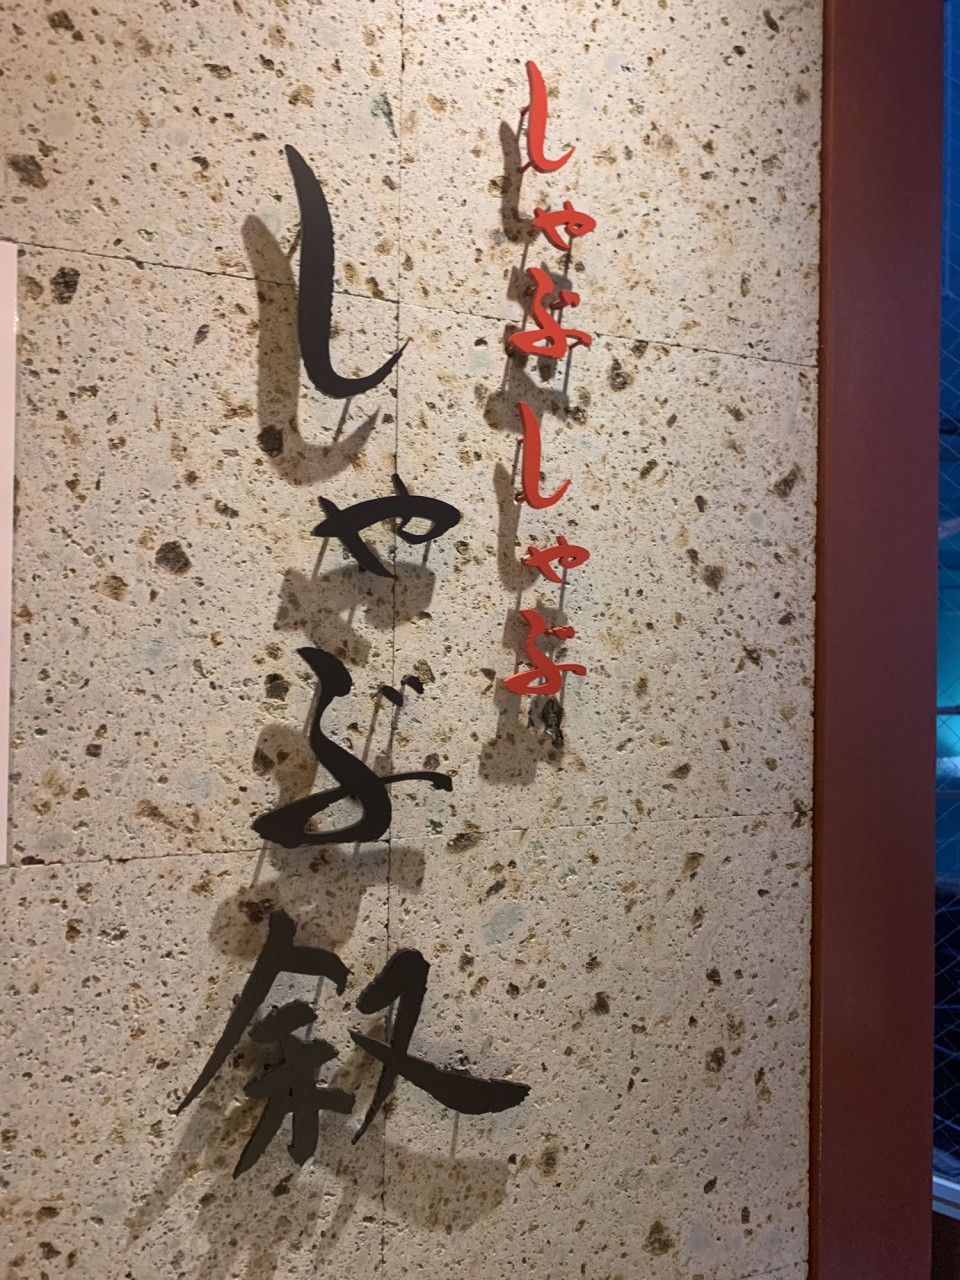 しゃぶしゃぶ
しゃぶ叙